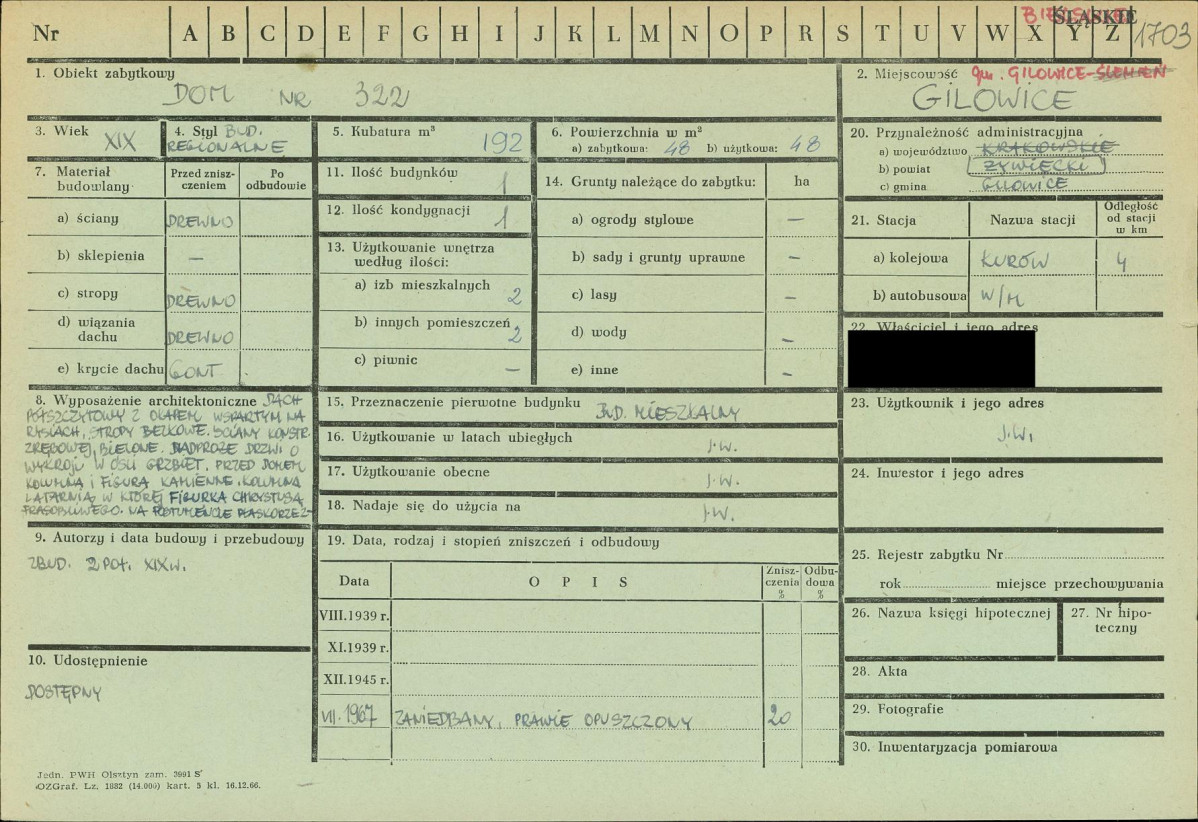 Nr A B C D E F G H I J K L M N O P R S T U V W X Y Z 1703
ŚLĄSKIE
1. Obiekt zabytkowy
DOM NR 322
2. Miejscowość gm. GILOWICE-ŚLEMIEŃ
GILOWICE
3. Wiek
XIX
4. Styl BUD.
REGIONALNE
5. Kubatura m³
192
6. Powierzchnia w m²
a) zabytkowa: 48 b) użytkowa: 48
7. Materiał budowlany
Przed zniszczeniem
Po odbudowie
a) ściany DREWNO
b) sklepienia —
c) stropy DREWNO
d) wiązania dachu DREWNO
e) krycie dachu GONT
8. Wyposażenie architektoniczne DACH
PÓŁSZCZYTOWY Z OKAPEM WSPARTYM NA
RYSIACH, STROPY BELKOWE. ŚCIANY KONSTR.
ZRĘBOWEJ, BIELONE. NADPROŻE DRZWI O
WYKROJU W OŚLI GRZBIET. PRZED DOMEM
KOLUMNA I FIGURA KAMIENNE. KOLUMNA
LATARNIA, W KTÓREJ FIGURKA CHRYSTUSA
FRASOBLIWEGO. NA POSTUMENCIE PŁASKORZEŹ-
9. Autorzy i data budowy i przebudowy
ZBUD. 2 POŁ. XIX W.
10. Udostępnienie
DOSTĘPNY
11. Ilość budynków 1
12. Ilość kondygnacji 1
13. Użytkowanie wnętrza
według ilości:
a) izb mieszkalnych 2
b) innych pomieszczeń 2
c) piwnic —
14. Grunty należące do zabytku: ha
a) ogrody stylowe —
b) sady i grunty uprawne —
c) lasy —
d) wody —
e) inne —
15. Przeznaczenie pierwotne budynku BUD. MIESZKALNY
16. Użytkowanie w latach ubiegłych J.W.
17. Użytkowanie obecne J.W.
18. Nadaje się do użycia na J.W.
19. Data, rodzaj i stopień zniszczeń i odbudowy
Data
O P I S
Zniszczenia %
Odbudowa %
VIII.1939 r.
XI.1939 r.
XII.1945 r.
VII.1967 ZANIEDBANY, PRAWIE OPUSZCZONY 20
20. Przynależność administracyjna
a) województwo KRAKOWSKIE
b) powiat ŻYWIECKI
c) gmina GILOWICE
21. Stacja
Nazwa stacji
Odległość od stacji w km
a) kolejowa KURÓW 4
b) autobusowa W/M
22. Właściciel i jego adres
23. Użytkownik i jego adres
J.W.
24. Inwestor i jego adres
25. Rejestr zabytku Nr
rok miejsce przechowywania
26. Nazwa księgi hipotecznej
27. Nr hipoteczny
28. Akta
29. Fotografie
30. Inwentaryzacja pomiarowa
Jedn. PWH Olsztyn zam. 3991 S
OZGraf. Lz. 1832 (14.000) kart. 5 kl. 16.12.66.